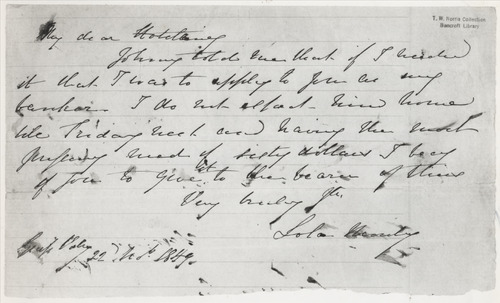 T. W. Norris Collection
Bancroft Library
My dear
Johnny told me that if I needed
it that I was to apply to you as my
banker. I do not expect him home
till Friday next and having the most
pressing need of sixty dollars I beg
of you to give it to the bearer of this
Very truly Yrs
Lola
22 1849